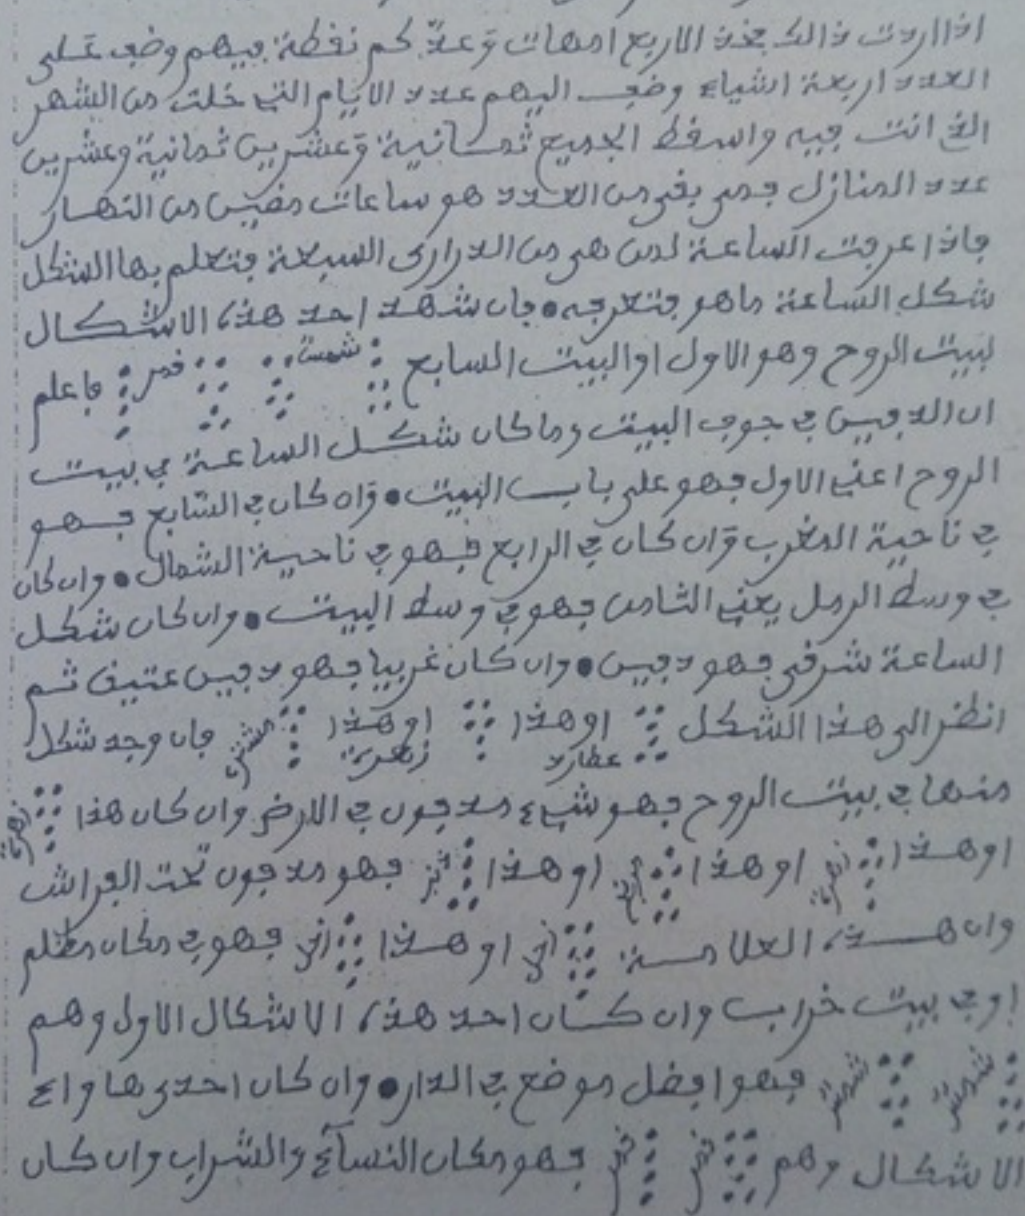 اذا اردت ذالك بخذ الاربع امهات وعد كم نفطة بيهم وضع على
العدد اربعة اشياء وضع اليهم عدد الايام التي خلت من الشهر
الذي انت بيه واسفط الجميع ثمانية وعشرين ثمانية وعشرين
عدد المنازل بمى بفى من العدد هو ساعات مضين من النهار
باذا عربت الساعة لمن هى من الدرارى السبعة بتعلم بها الشكل
شكل الساعة ما هو بتعربه • بان شهد احد هذه الاشكال
لبيت الروح وهو الاول او البيت السابع شمس فمر باعلم
ان الدبين بي جوب البيت وما كان شكل الساعة بي بيت
الروح اعني الاول بهو على باب البيت • وان كان بي السابع بهو
بي ناحية المغرب وان كان بي الرابع بهو بي ناحية الشمال • وان كان
بي وسط الرمل يعني الثامن بهو بي وسط البيت • وان كان شكل
الساعة شرفى بهو دبين • وان كان غربيا بهو دبين عتيف ثم
انظر الى هذا الشكل عطارد او هذا او هذا زهرة بان وجد شكل
منها بي بيت الروح بهو شيء مدبون بي الارض وان كان هذا
او هذا او هذا او هذا بهو مدبون تحت البراش
وان هذه العلامة او هذا بهو بي مكان مظلم
او بي بيت خراب وان كان احد هذه الاشكال الاول وهم
شمس شمس بهو ابضل موضع بي الدار • وان كان احدى هاواء
الاشكال وهم فمر فمر بهو مكان النساء والشراب وان كان